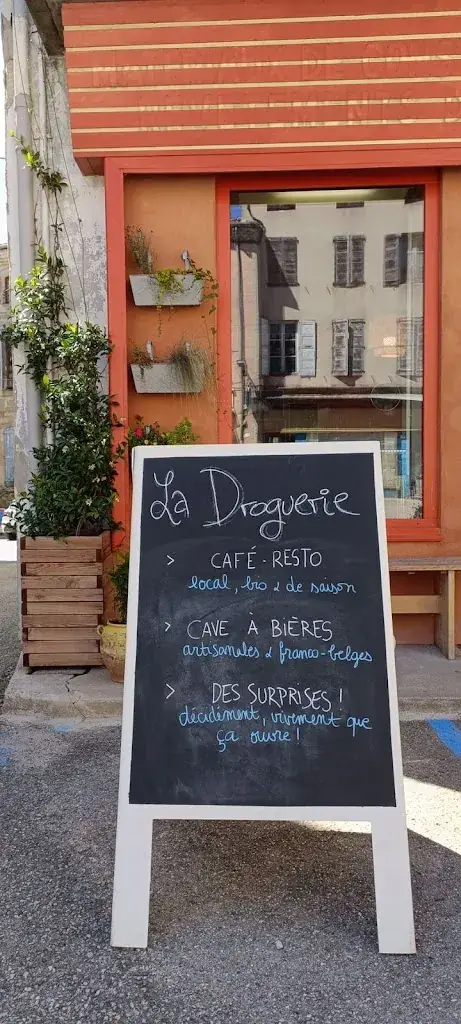 La Droguerie
> CAFÉ - RESTO
local, bio & de saison
> CAVE À BIÈRES
artisanales & franco-belges
> DES SURPRISES !
décidément, vivement que
ça ouvre !